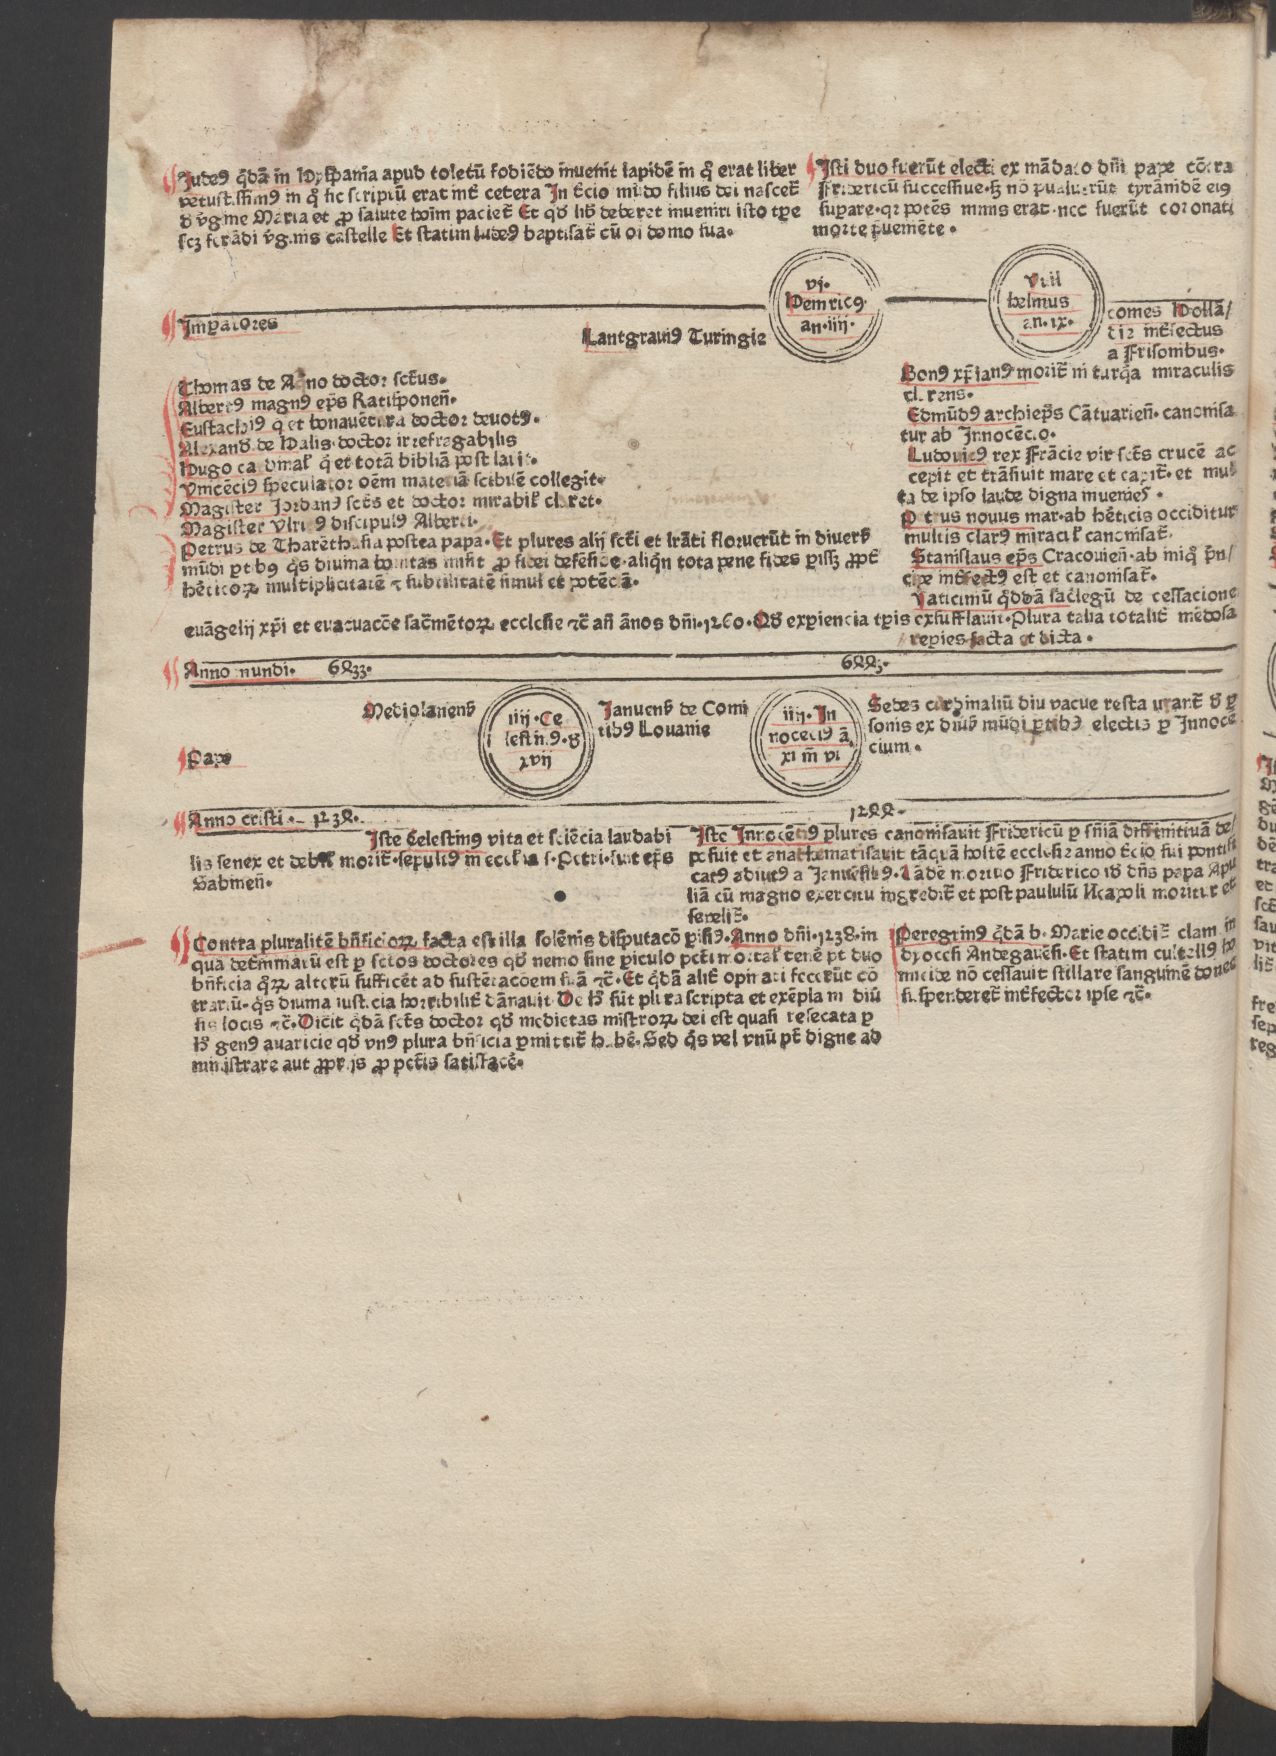 Judeꝰ q̄dā in Hyspania apud toletū fodiēdo inuenit lapidē in q̊ erat liber
vetustissimꝰ in q̊ sic scriptū erat int̄ cetera In t̄cio mūdo filius dei nascet̄
d̄ v̄gine Maria et ꝓ salute hoīm paciet̄ Et qd̄ lib̄ deberet inueniri isto tꝑe
scꝫ ferādi v̄ginis castelle Et statim iudeꝰ baptisat̄ cū oī domo sua.
Isti duo fuerūt electi ex mādato dn̄i pape cōtra
Fridericū successiue. sꝫ nō p̄ualuerūt tyrānidē eiꝰ
suꝑare. qr potēs nimis erat. nec fuerūt coronati
morte p̄uemēte.
vj.
Henricꝰ
an. iiij.
Vuil
helmus
an. ix.
comes Hollā/
tie int̄fectus
a Frisonibus.
Imꝑatores
Lantgrauiꝰ Turingie
Thomas de Aq̄no doctor sct̄us.
Albertꝰ magnꝰ ep̄s Ratisponen̄.
Eustachiꝰ q et bonauētura doctor deuotꝰ.
Alexand̄ de Halis. doctor irrefragabilis
Hugo cardinal̄ q̄ et totā bibliā postlauit.
Vincēciꝰ speculator oēm materiā scibilē collegit.
Magister Jordanꝰ sct̄s et doctor mirabil̄ claret.
Magister Vlricꝰ discipulꝰ Alberti.
Petrus de Tharēthasia postea papa. Et plures alij sct̄i et lrāti floruerūt in diuers̄
mūdi ꝑtibꝰ q̄s diuina bonitas misit ꝓ fidei defēsiōe. aliqn̄ tota pene fides ꝑisſꝫ ꝓpt̄
hēticoꝝ multiplicitatē ⁊ subtilitatē simul et potēciā.
Bonꝰ xp̄ianꝰ morit̄ in turq̄a miraculis
clarens.
Edmūdꝰ archiep̄s Cātuarien̄. canonisa
tur ab Innocēcio.
Ludouicꝰ rex Frācie vir sct̄s crucē ac
cepit et trāsiuit mare et capit̄. et mul
ta de ipso laude digna inuenies.
Petrus nouus mar. ab hēticis occiditur
multis clarꝰ miracul̄ canonisat̄.
Stanislaus ep̄s Cracouien̄. ab iniq̊ p̄n/
cipe int̄fectꝰ est et canonisat̄.
Vaticiniū q̊ddā sac̄legū de cessacione
euāgelij xp̄i et euacuacōe sac̄mētoꝝ ecclesie ⁊c̄ an̄ ānos dn̄i. 1260. Qd̄ exꝑiencia tꝑis exsufflauit. Plura talia totalit̄ mēdosa
reꝑies facta et dicta.
Anno mundi. 6433.
6445.
Mediolanens̄
iiij. Ce
lestinꝰ. d̄
xvij
Januens̄ de Comi
tibꝰ Louanie
iiij. In
nocēciꝰ ā.
xi m̄ vi
Sedes cardinaliū diu vacue restaurant̄ d̄ ꝑ
sonis ex diuers̄ mūdi ꝑtibꝰ electis ꝑ Innocē
cium.
Pape
Anno cristi. 1234.
1244.
Iste Celestinꝰ vita et sciēcia laudabi
lis senex et debil̄ morit̄. sepultꝰ in ecclesia s. Petri. fuit ep̄s
Sabinen̄.
Iste Innocētiꝰ plures canonisauit Fridericū ꝑ sn̄iā diffinitiuā de/
posuit et anathematisauit tāquā hostē ecclesie anno t̄cio sui pontifi
catꝰ adiutꝰ a Januēsibꝰ. Tādē mortuo Friderico id̄ dn̄s papa Apu
liā cū magno exercitu ingredit̄ et post paululū Neapoli moritur et
sepelit̄.
Contra pluralitē bn̄ficioꝝ facta est illa solēnis disputacō ꝑisiꝰ. Anno dn̄i. 1238. in
qua det̄minatū est ꝑ sctōs doctores qd̄ nemo sine ꝑiculo pct̄i mortal̄ tenē pt̄ duo
bn̄ficia q̊ꝝ alterū sufficēt ad sustētacōem suā ⁊c̄. Et q̄dā alit̄ opinati fecerūt cō
trariū. q̄s diuina iusticia horribilit̄ dānauit. De hō sūt plura scripta et exēpla in diū
sis locis ⁊c̄. Dicit q̄dā sct̄s doctor qd̄ medietas mīstroꝝ dei est quasi resecata ꝑ
hō genꝰ auaricie qd̄ vnꝰ plura bn̄ficia ꝑmittit̄ habē. Sed q̄s vel vnū pt̄ digne ad
ministrare aut ꝓprijs ꝓ pct̄is satisfacē.
Peregrinꝰ q̄dā b. Marie occidit̄ clam in
dyocesi Andegauēsi. Et statim cultellꝰ ho
micide nō cessauit stillare sanguinē donec
suspenderet̄ int̄fector ipse ⁊c̄.